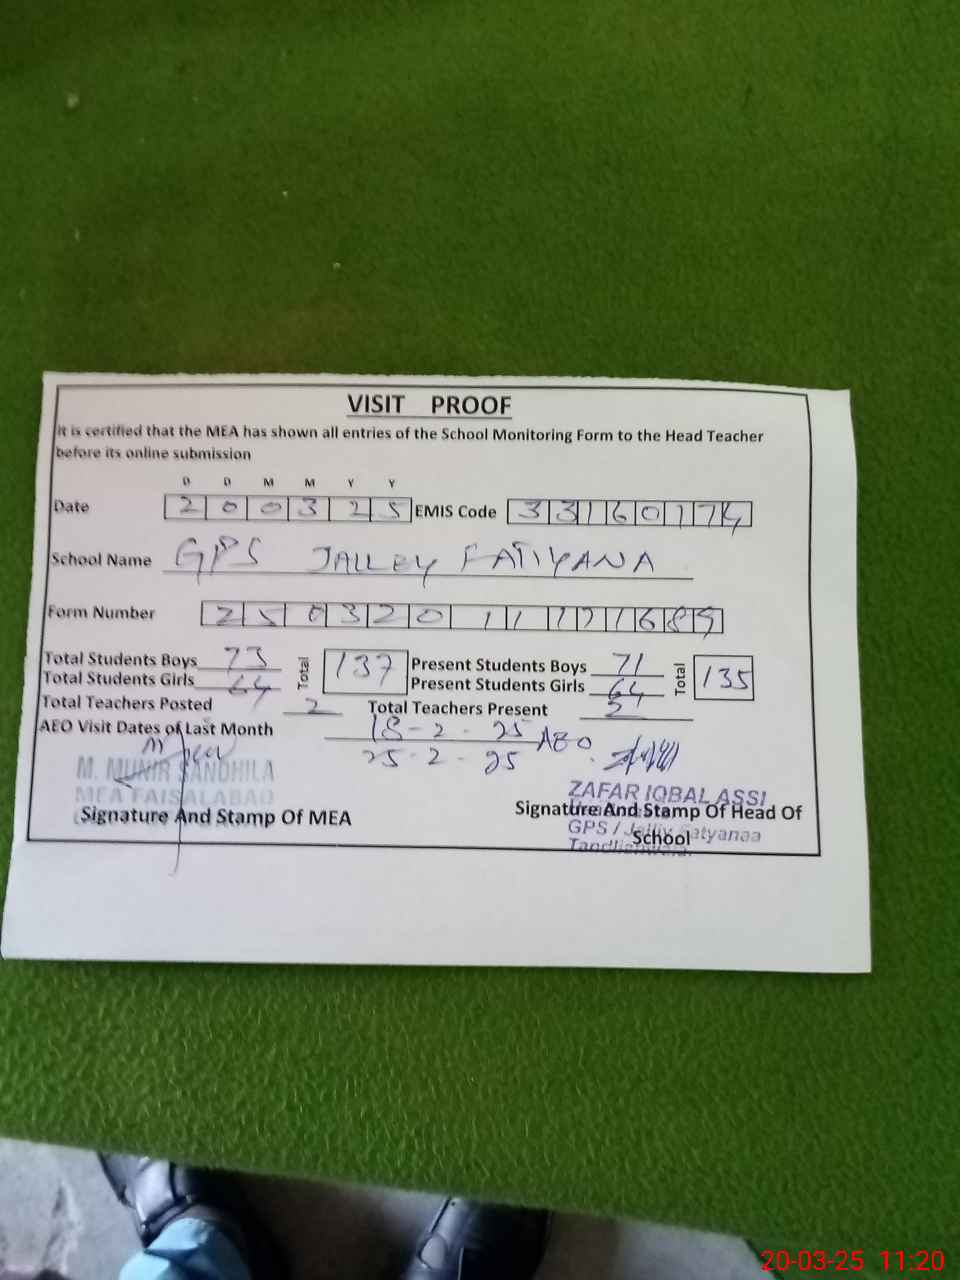 VISIT PROOF
It is certified that the MEA has shown all entries of the School Monitoring Form to the Head Teacher
before its online submission
D D M M Y Y
Date 2 0 0 3 2 5 EMIS Code 3 3 1 6 0 1 7 4
School Name GPS JALLEY FATIYANA
Form Number 2 5 0 3 2 0 1 1 1 7 1 6 8 9
Total Students Boys 73 Total 137 Present Students Boys 71 Total 135
Total Students Girls 64 Present Students Girls 64
Total Teachers Posted 2 Total Teachers Present 2
AEO Visit Dates of Last Month 18-2-25 AEO
25-2-25
M. MUNIR SANDHILA
MEA FAISALABAD
ZAFAR IQBAL ASSI
Signature And Stamp Of MEA
Signature And Stamp Of Head Of
School
GPS / Jalliy Satyanaa
Tandlianwala.
20-03-25 11:20